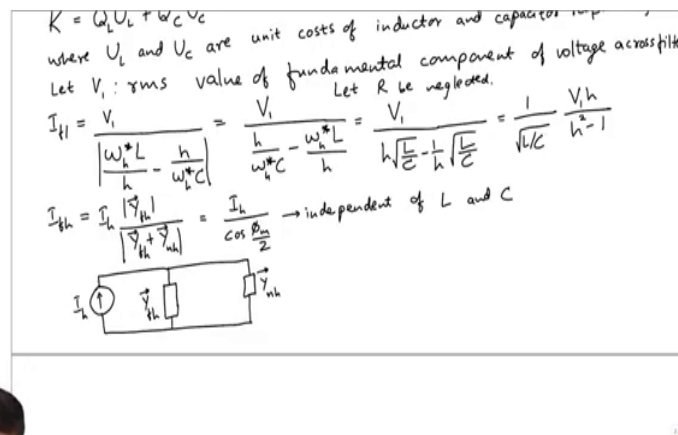 K = Q_L U_L + Q_C U_C
where U_L and U_C are unit costs of inductor and capacitor
Let V_1 : rms value of fundamental component of voltage across
Let R be neglected.
I_f1 = V_1 / |ω_h* L / h - h / (ω_h* C)| = V_1 / (h / (ω_h* C) - ω_h* L / h) = V_1 / (h √(L/C) - (1/h) √(L/C)) = 1 / √(L/C) V_1 h / (h² - 1)
I_fh = I_h |Y⃗_fh| / |Y⃗_fh + Y⃗_nh| = I_h / cos (φ_m / 2) → independent of L and C
I_h Y⃗_fh Y⃗_nh